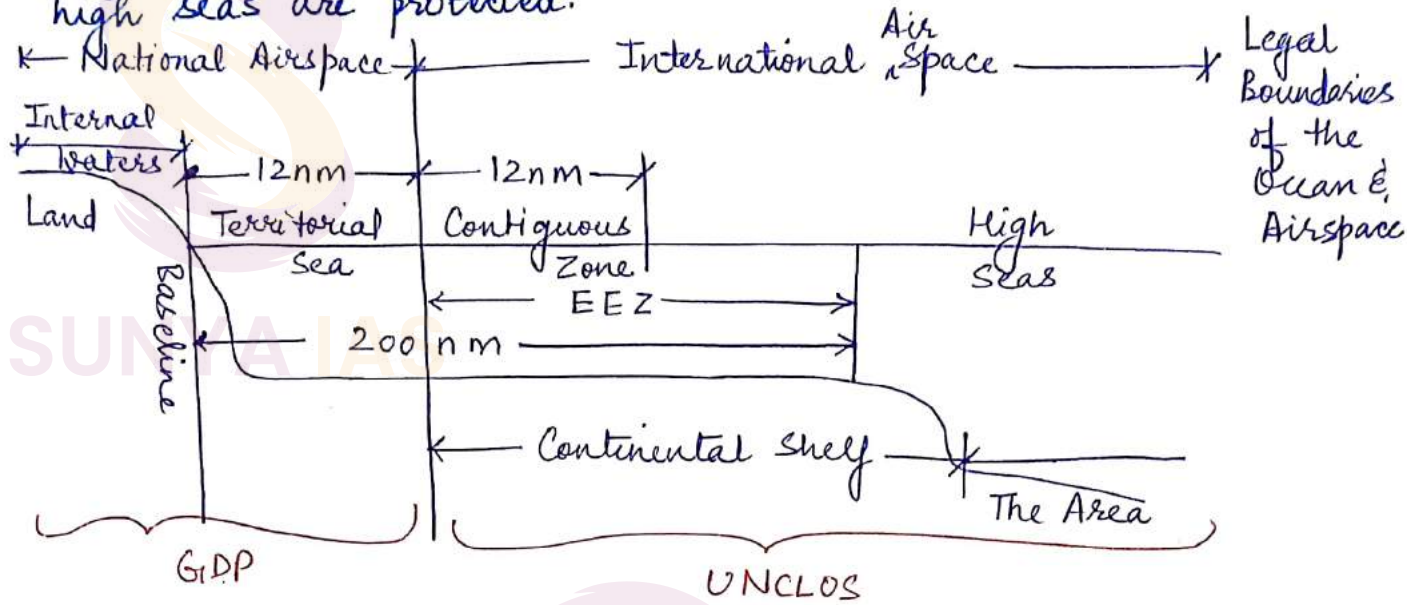 high seas are protected.
National Airspace
International Air Space
Legal
Boundaries
of the
Ocean &
Airspace
Internal
Waters
12nm
12nm
Land
Territorial
Sea
Contiguous
Zone
High
Seas
Baseline
EEZ
200 nm
SUNYA IAS
Continental Shelf
The Area
GDP
UNCLOS